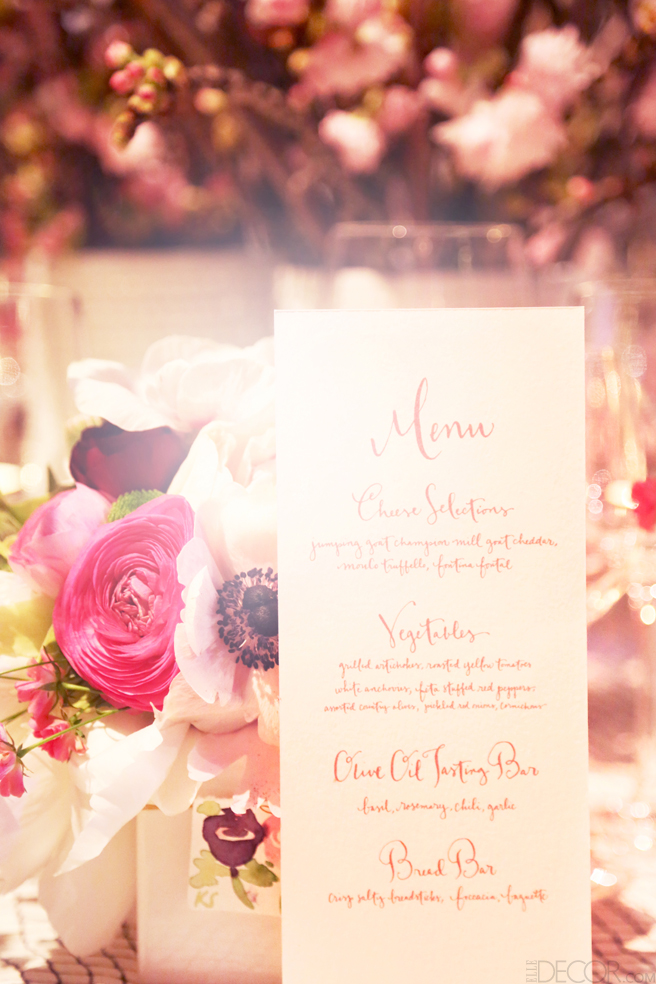 Menu
Cheese Selections
jumping goat champion mill goat cheddar,
truffelle,
Vegetables
grilled artichokes, roasted yellow tomatoes
white anchovies, feta stuffed red peppers,
assorted country olives, pickled red onions, cornichons
Olive Oil Tasting Bar
basil, rosemary, chili, garlic
Bread Bar
crispy salty breadsticks, foccacia, baguette
KT
ELLE DECOR.COM